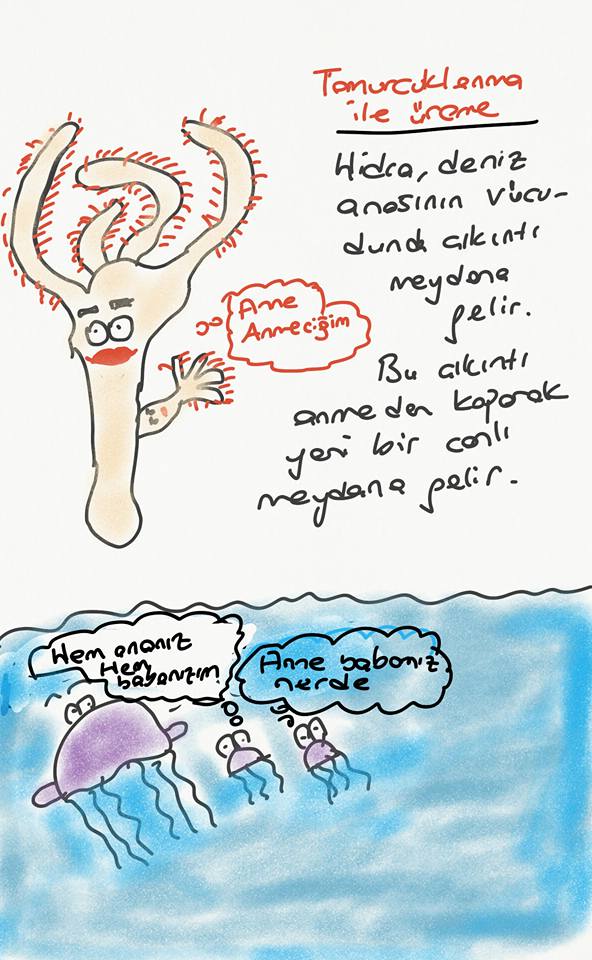 Tomurcuklanma
ile üreme
Hidra, deniz
anasının vücu-
dunda çıkıntı
meydana
gelir.
Anne
Anneciğim
Bu çıkıntı
anneden koparak
yeni bir canlı
meydana gelir.
Hem ananız
Hem
babanızım
Anne babamız
nerde